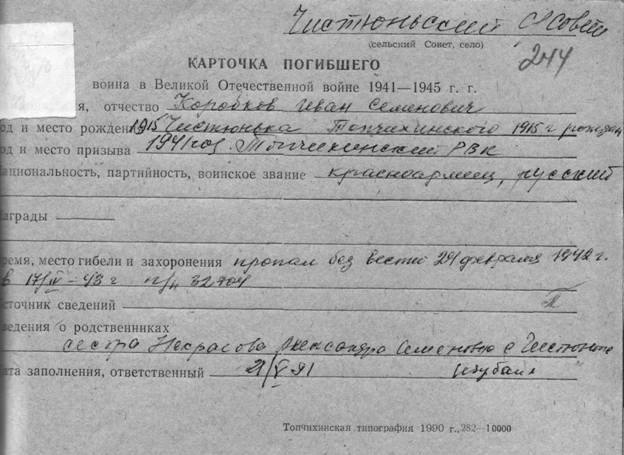 Чистюньский с/совет
(сельский Сонет, село)
244
КАРТОЧКА ПОГИБШЕГО
воина в Великой Отечественной войне 1941—1945 г. г.
я, отчество Коробков Иван Семенович
од и место рождени 1915 Чистюнька Топчихинского 1915 г рожден
од и место призыва 1941 год. Топчихинский РВК
ациональность, партийность, воинское звание красноармеец, русский
аграды
ремя, место гибели и захоронения пропал без вести 24 февраля 1942 г.
в 17/IV-43 г п/я 32704
сточник сведений
ведения о родственниках
сестра Некрасова Александра Семеновна с Чистюнька
ата заполнения, ответственный 2/V 91
Топчихинская типография 1990 г., 282—10000